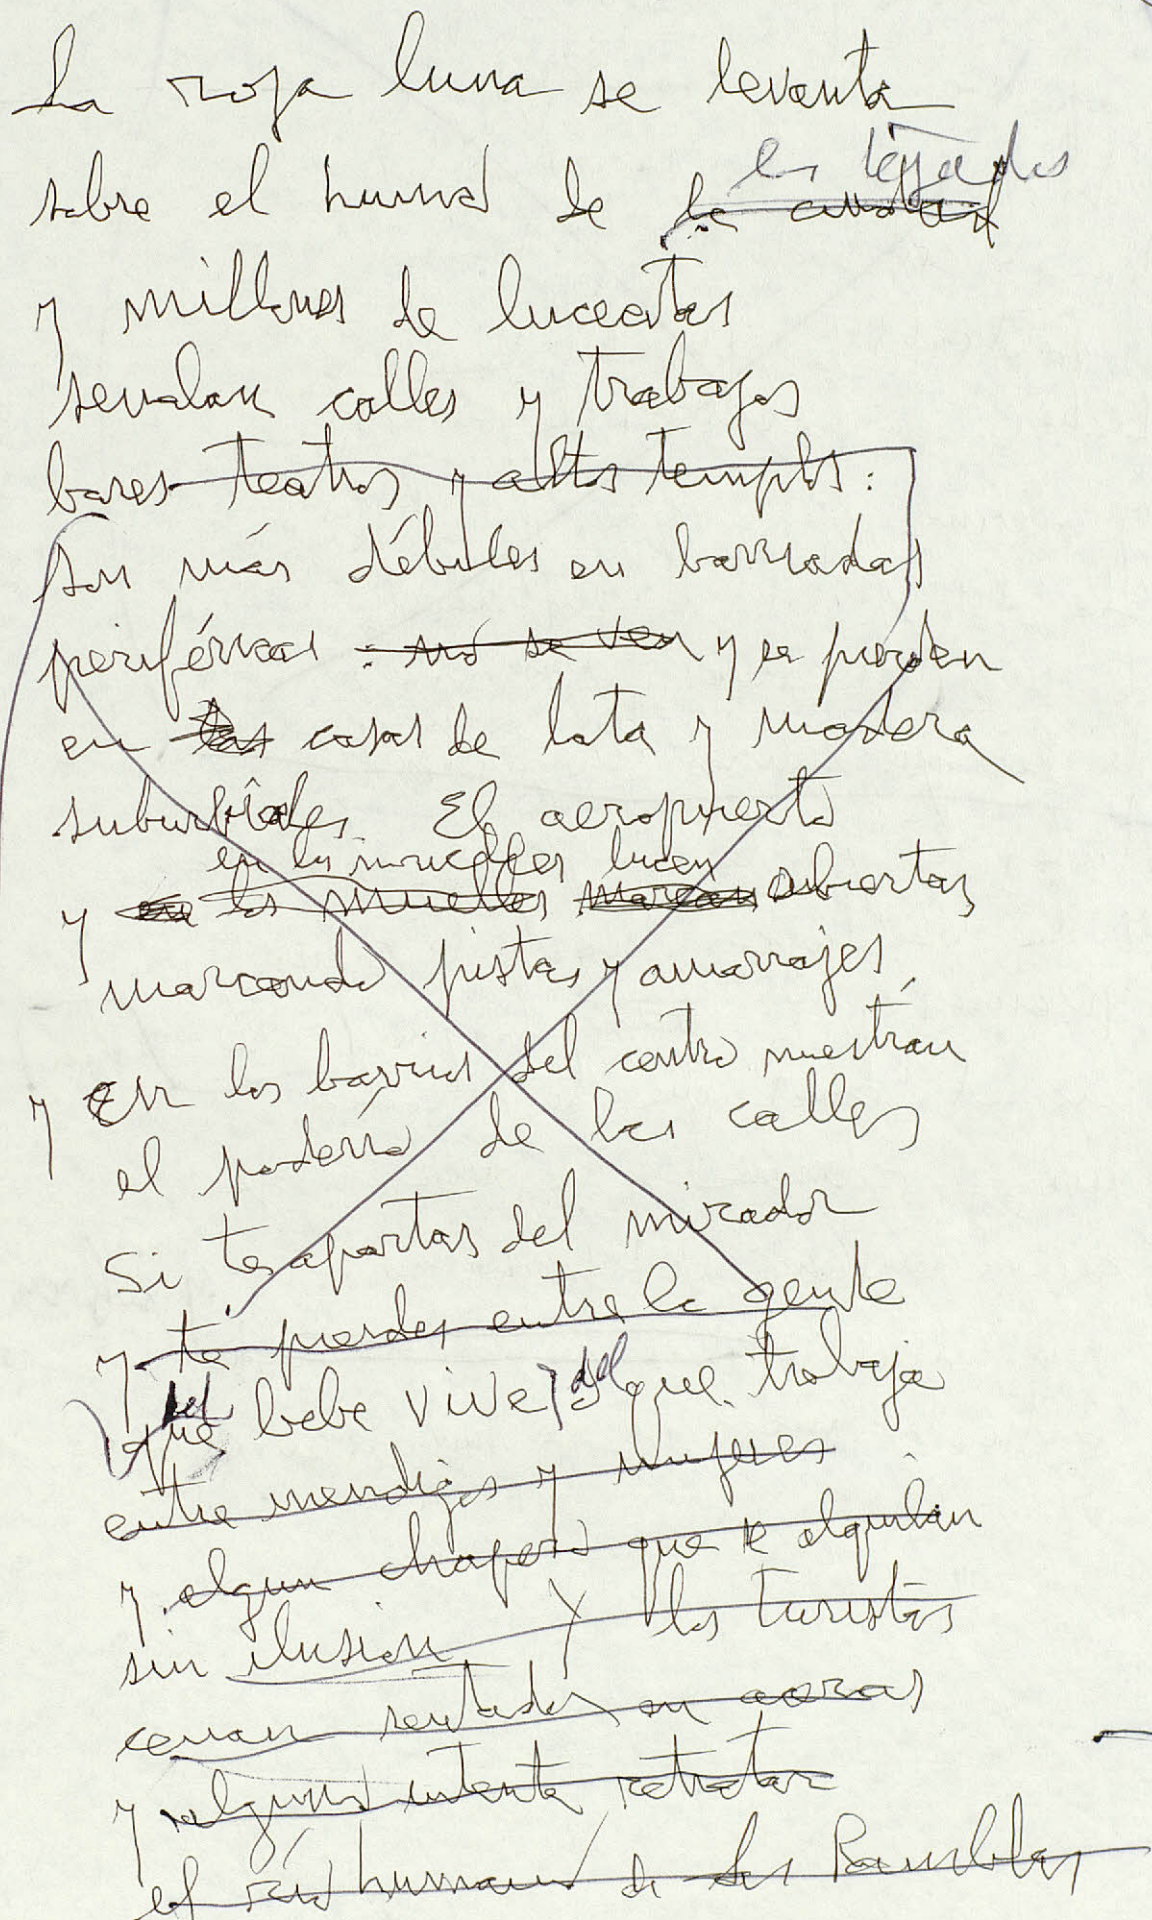 La roja luna se levanta
los tejados
sobre el humo de la ciudad
y millones de lucecitas
señalan calles y trabajos
bares teatros y altos templos:
son más débiles en barriadas
periféricas : no se ven y se pierden
en las casas de lata y madera
suburbiales. El aeropuerto
en los muelles lucen
y en los muelles marcan abiertas
marcando pistas y amarrajes,
y En los barrios del centro muestran
el poderío de las calles
Si te apartas del mirador
y te pierdes entre la gente
del
que bebe vive y del que trabaja
entre mendigos y mujeres
y algun chapero que se alquilan
sin ilusión Y los turistas
cenan sentados en aceras
y alguno intenta retratar
el río humano de las Ramblas